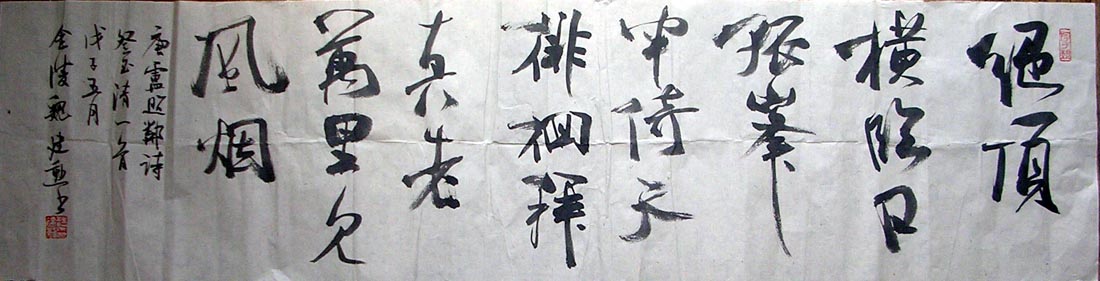 絕頂
横临日
孤峯
半倚天
徘徊拜
真老
萬里见
风烟
唐盧照鄰詩
登玉清一首
戊子五月
金陵魏建勳书